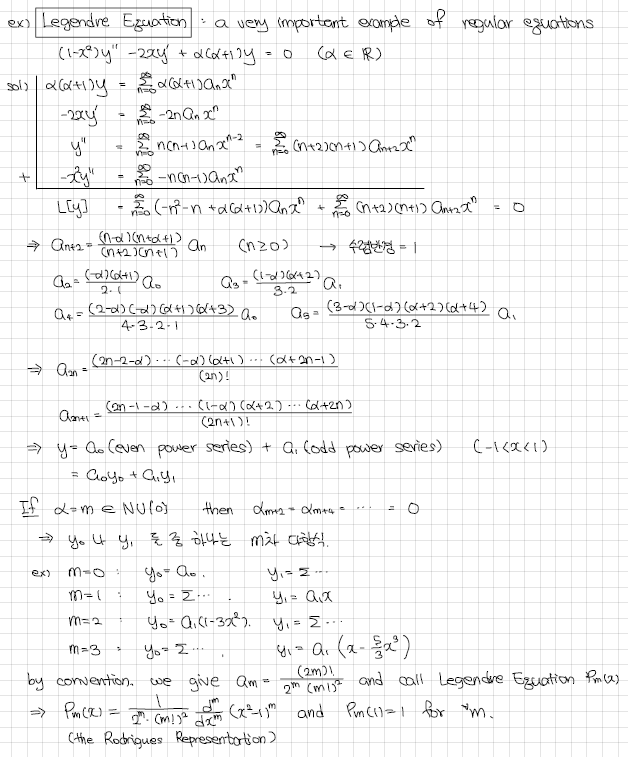 ex) Legendre Equation : a very important example of regular equations
(1-x²)y'' -2xy' + α(α+1)y = 0 (α ∈ ℝ)
sol) α(α+1)y = ∑_{n=0}^{∞} α(α+1)aₙxⁿ
-2xy' = ∑_{n=0}^{∞} -2naₙxⁿ
y'' = ∑_{n=0}^{∞} n(n-1)aₙx^{n-2} = ∑_{n=0}^{∞} (n+2)(n+1)a_{n+2}xⁿ
+ -x²y'' = ∑_{n=0}^{∞} -n(n-1)aₙxⁿ
L[y] = ∑_{n=0}^{∞} (-n²-n+α(α+1))aₙxⁿ + ∑_{n=0}^{∞} (n+2)(n+1)a_{n+2}xⁿ = 0
⇒ a_{n+2} = (n-α)(n+α+1)/(n+2)(n+1) aₙ (n≥0) → 수렴반경 = 1
a₂ = (-α)(α+1)/2·1 a₀ a₃ = (1-α)(α+2)/3·2 a₁
a₄ = (2-α)(-α)(α+1)(α+3)/4·3·2·1 a₀ a₅ = (3-α)(1-α)(α+2)(α+4)/5·4·3·2 a₁
⇒ a_{2n} = (2n-2-α)···(-α)(α+1)···(α+2n-1)/(2n)!
a_{2n+1} = (2n-1-α)···(1-α)(α+2)···(α+2n)/(2n+1)!
⇒ y = a₀(even power series) + a₁(odd power series) (-1<x<1)
= a₀y₀ + a₁y₁
If α=m ∈ ℕ∪{0} then α_{m+2} = α_{m+4} = ··· = 0
⇒ y₀ 나 y₁ 둘 중 하나는 m차 다항식.
ex) m=0 : y₀ = a₀. y₁ = ∑···
m=1 : y₀ = ∑··· . y₁ = a₁x
m=2 : y₀ = a₁(1-3x²). y₁ = ∑···
m=3 : y₀ = ∑··· . y₁ = a₁(x - 5/3 x³)
by convention. we give aₘ = (2m)!/2ᵐ(m!)² and call Legendre Equation Pₘ(x)
⇒ Pₘ(x) = 1/2ᵐ·(m!)² dᵐ/dxᵐ (x²-1)ᵐ and Pₘ(1)=1 for ∀m.
(the Rodrigues Representation)